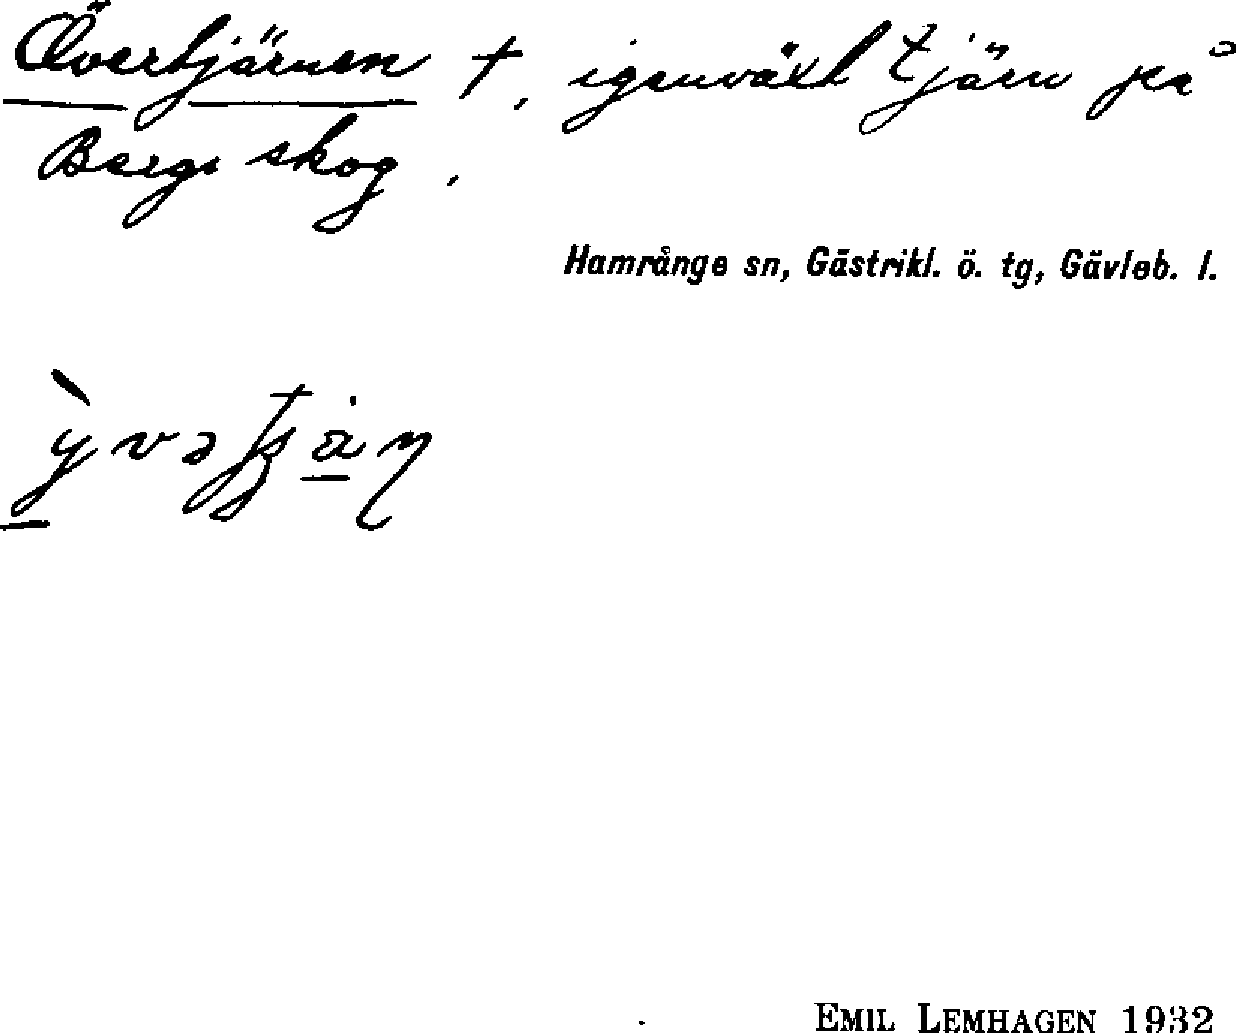 Övertjärnen †, igenväxt tjärn på
Bergs skog.
Hamrånge sn, Gästrikl. ö. tg, Gävleb. l.
EMIL LEMHAGEN 1932